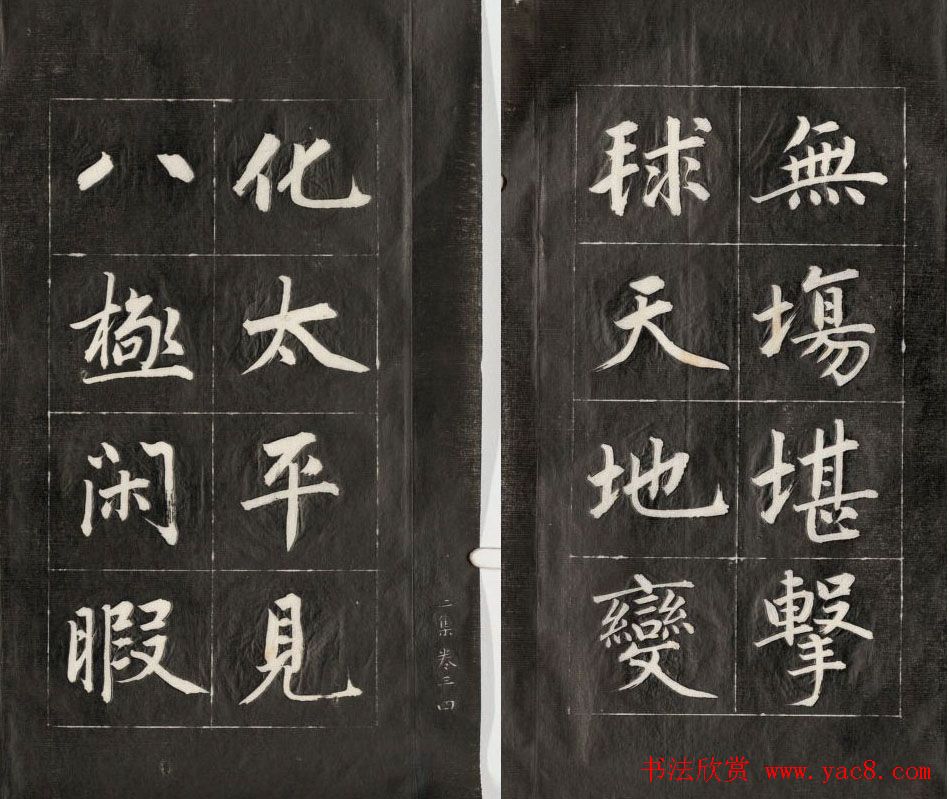 無塲堪擊
球天地變
化太平見
八極闲暇
二集卷三 四
书法欣赏 www.yac8.com